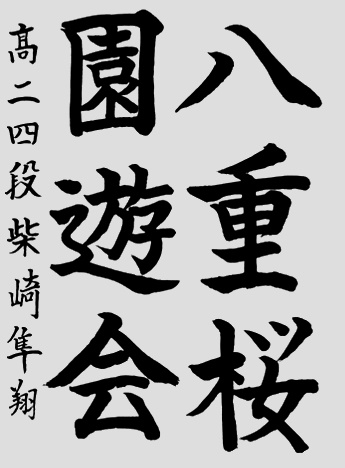 八重桜
園遊会
高二四段柴崎隼翔